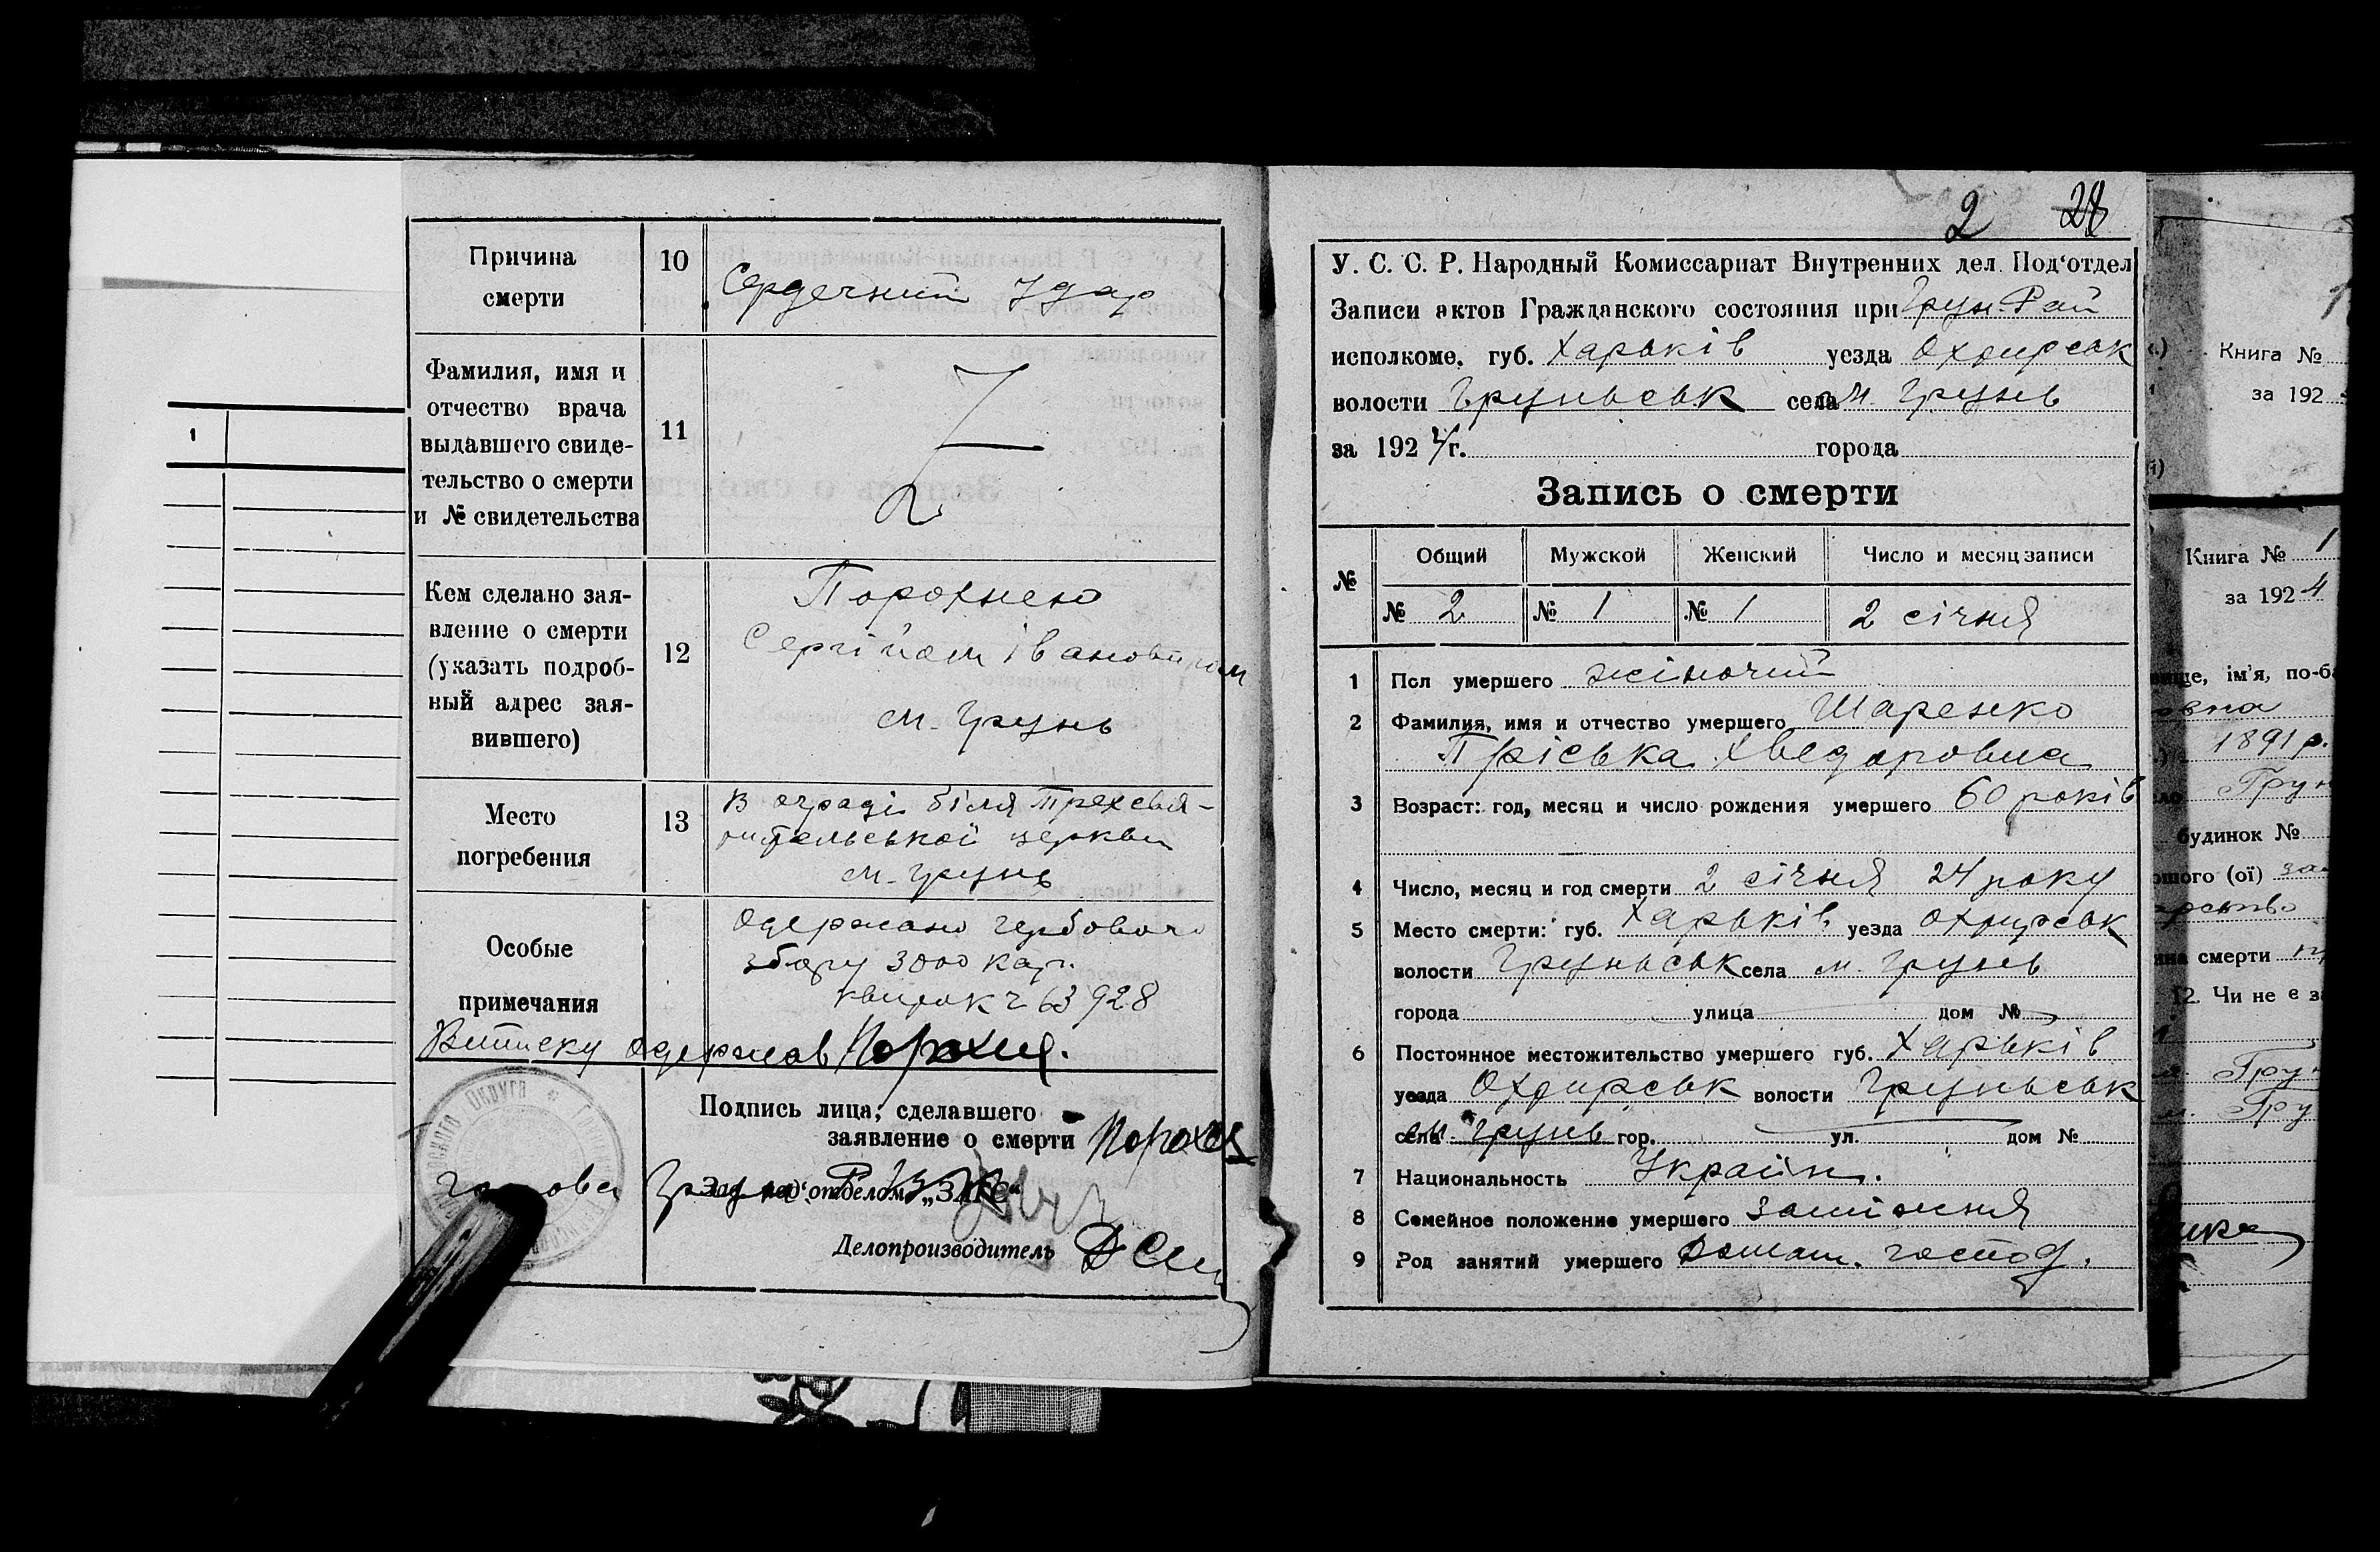 1
Причина
смерти
10
Сердечний Удар
Фамилия, имя и
отчество врача
выдавшего свиде-
тельство о смерти
и № свидетельства
11
Кем сделано зая-
вление о смерти
(указать подроб-
ный адрес зая-
вившего)
12
Порохнею
Сергійом Івановичом
м. Грунь
Место
погребения
13
В ограді біля Трехсвя-
тительської церкви
м. Грунь
Особые
примечания
Одержано гербового
збору 3000 кар.
квиток ч 63928
Виписку одержав Порохня.
Подпись лица, сделавшего
заявление о смерти Порохня
Зав. под‘отделом „ЗАГС“
Делопроизводитель
2 28
У. С. С. Р. Народный Комиссариат Внутренних дел. Под‘отдел
Записи актов Гражданского состояния при Грун. Рай
исполкоме, губ. Харьків уезда Охтирськ
волости Груньськ села м. Грунь
за 1924 г. города
Запись о смерти
№ Общий Мужской Женский Число и месяц записи
№ 2 № 1 № 1 2 січня
1 Пол умершего жіночий
2 Фамилия, имя и отчество умершего Шаренко
Пріська Хведоровна
3 Возраст: год, месяц и число рождения умершего 60 років
4 Число, месяц и год смерти 2 січня 24 року
5 Место смерти: губ. Харьків уезда Охтирськ
волости Груньськ села м. Грунь
города улица дом №
6 Постоянное местожительство умершего губ. Харьків
уезда Охтирськ волости Груньськ
села м. Грунь гор. ул. дом №
7 Национальность Україн.
8 Семейное положение умершего Заміжня
9 Род занятий умершего Домаш. господ.
Книга №
за 192
Книга № 1
за 1924
ім’я, по-б
1891 р.
Грун
будинок №
ошого (ої) за
смерти
12. Чи не є з
Грун
Гру